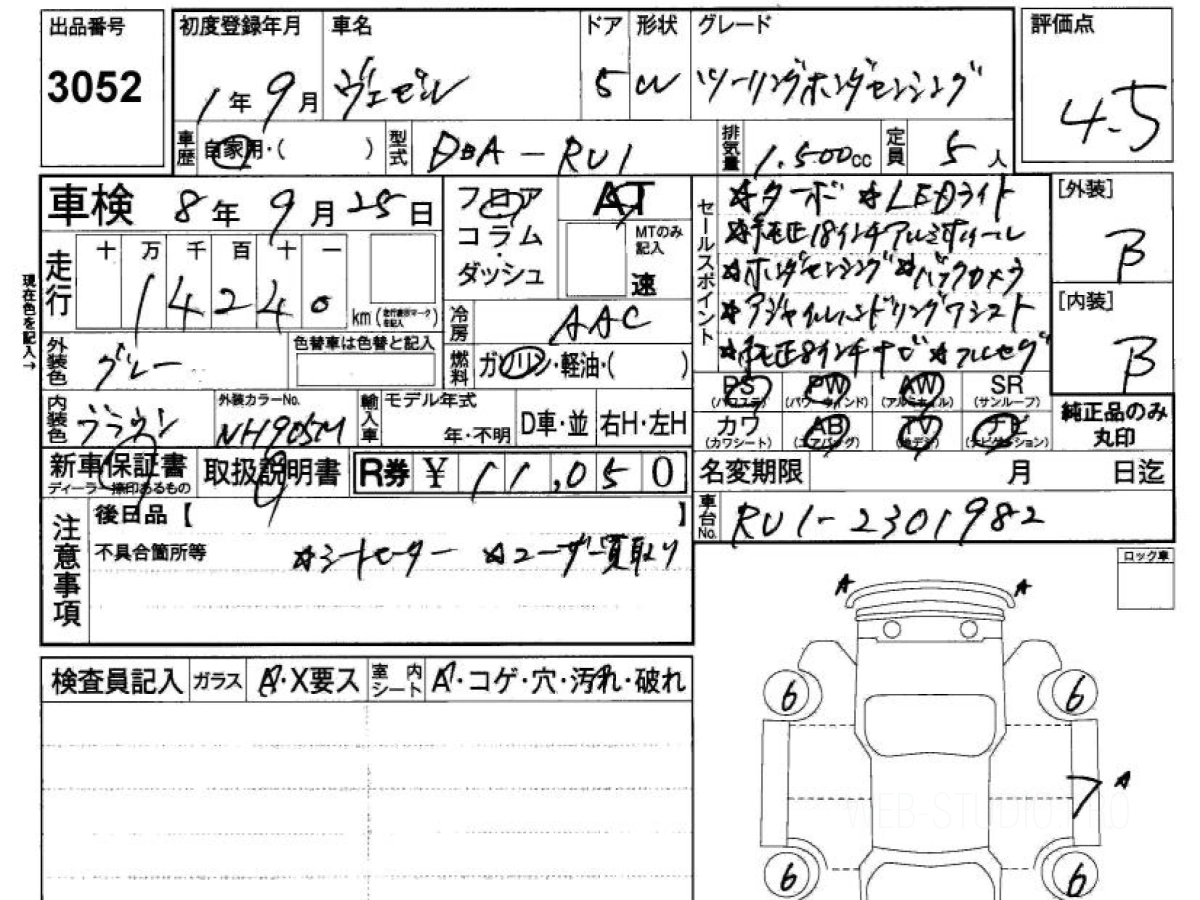 出品番号 初度登録年月 車名 ドア 形状 グレード 評価点
3052 1年9月 ヴェゼル 5 CW ツーリングホンダセンシング 4.5
車歴 自家用・( ) 型式 DBA-RU1 排気量 1.500cc 定員 5人
車検 8年9月25日 フロア AT セールスポイント ☆ターボ ☆LEDライト [外装]
コラム MTのみ記入 ☆純正18インチアルミホイール B
走行 十 万 千 百 十 一 ・ダッシュ 速 ☆ホンダセンシング ☆バックカメラ [内装]
現在色を記入→ 14240 km (走行表示マークを記入) 冷房 AAC ☆アジャイルハンドリングアシスト B
外装色 グレー 色替車は色替と記入 燃料 ガソリン・軽油・( ) ☆純正8インチナビ ☆フルセグ
PS (パワステ) PW (パワーウインド) AW (アルミホイル) SR (サンルーフ) 純正品のみ丸印
内装色 ブラウン 外装カラーNo. NH905M 輸入車 モデル年式 年・不明 D車・並 右H・左H カワ (カワシート) AB (エアバッグ) TV (地デジ) ナビ (ナビゲーション)
新車保証書 ディーラー捺印あるもの 取扱説明書 R券 ¥ 11,050 名変期限 月 日迄
注意事項 後日品【 】 車台No. RU1-2301982
不具合箇所等 ☆シートヒーター ☆ユーザー買取り ロック車
A A
検査員記入 ガラス A・X要ス 室内シート A・コゲ・穴・汚れ・破れ
6 6
フ A
WEB-STUDIO.PRO
6 6